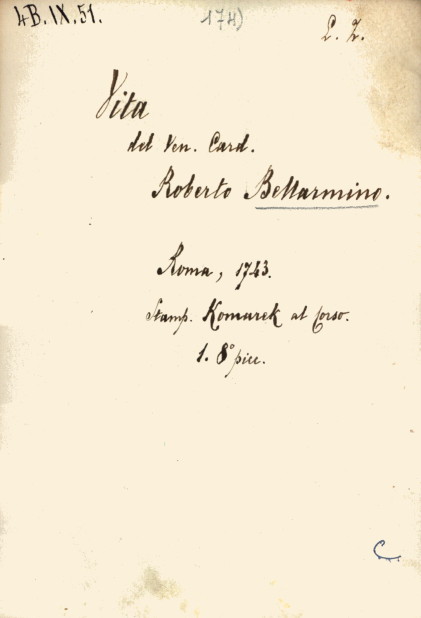 4B.IX.51.
174)
L. Z.
Vita
del Ven. Card.
Roberto Bellarmino.
Roma, 1743.
Stamp. Komarek al Corso.
1. 8° picc.
C.